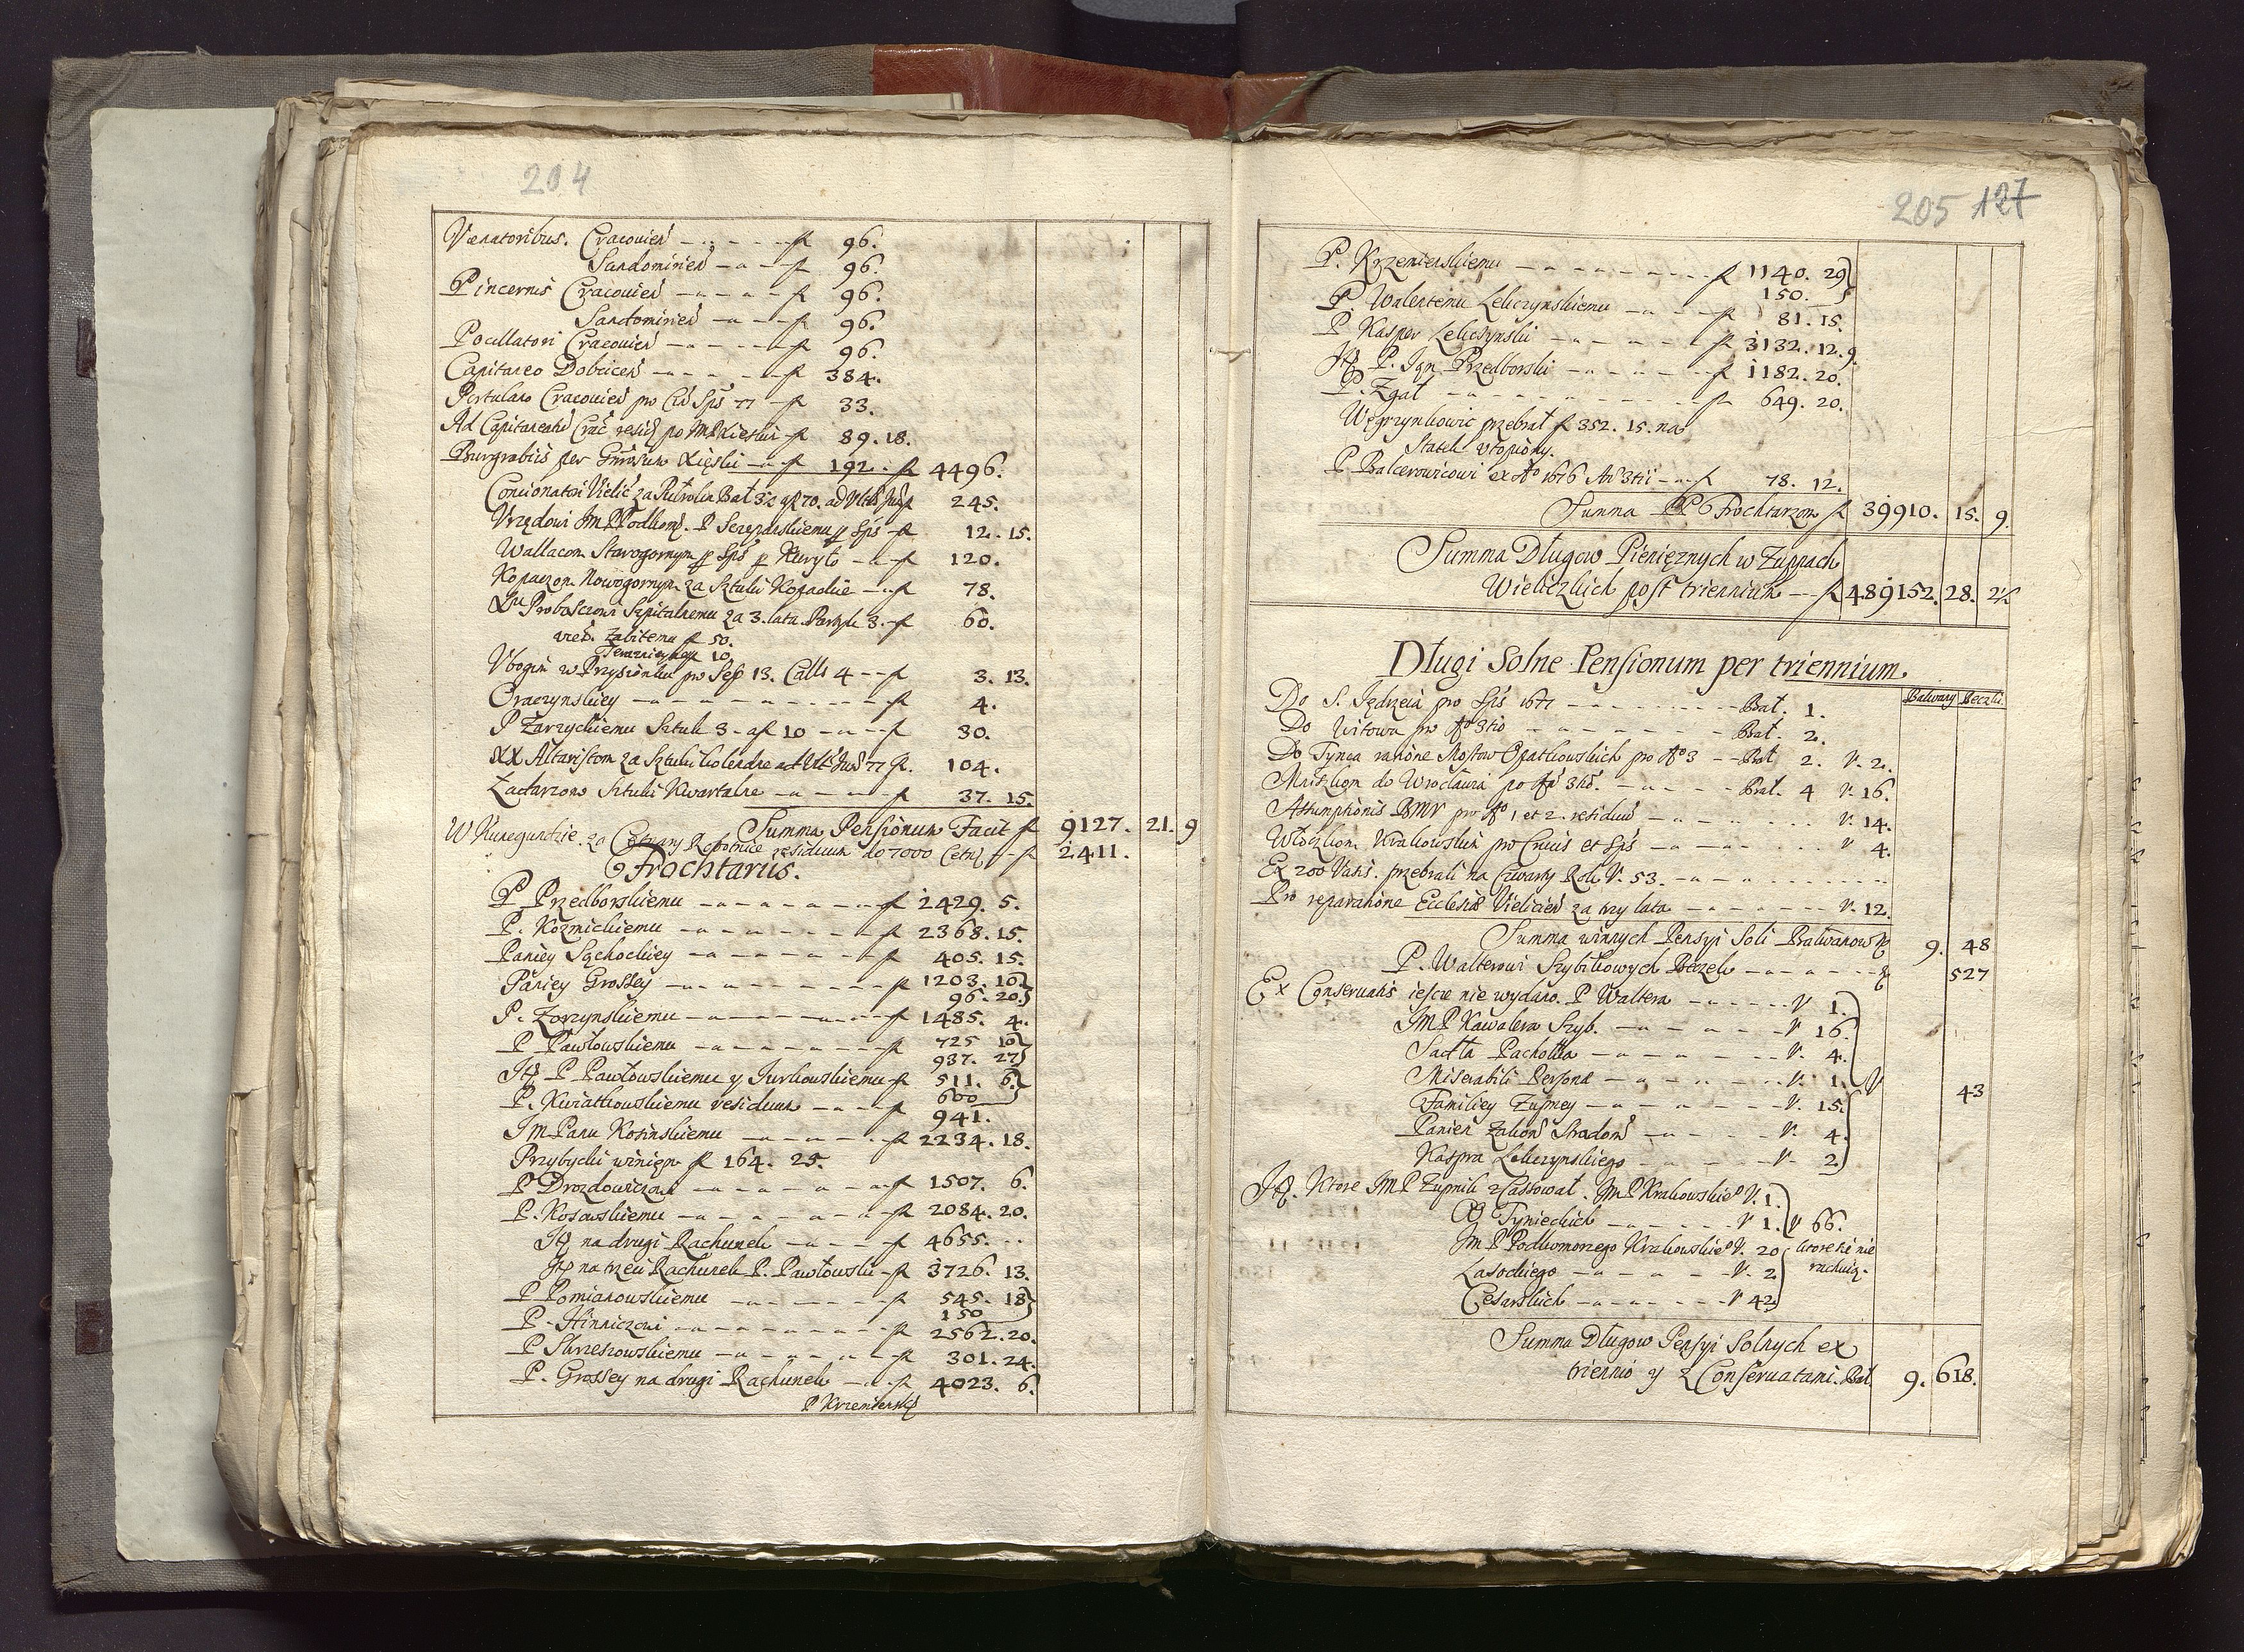 204
Venatoribus. Cracouień fl 96.
Sandomirień fl 96.
Pincernis Cracouień fl 96.
Sandomirień fl 96.
Pocillatori Cracouień fl 96.
Capitaneo Dobcień fl 384.
Portulano Cracouień pro Ciń Spś 77 fl 33.
Ad Capitaneatū Crac fl 89. 18.
Burgrabiis per fl 192. fl 4496.
Concionatori Vielic za 245.
Vrzędowi Jm P Podkom. P fl 12. 15.
Wallacom Starogornym fl 120.
Kopaczom Nowogornym za Sztuki Kopackie fl 78.
Xu Proboszczowi Szpitalnemu za 3. lata 3. fl 60.
Zabitemu fl 50.
10.
Vbogim w Przysionku pro Sep 13. Calls 4 fl 3. 13.
Oraczynskiey fl 4.
P Zarzyckiemu Sztuk 3. a fl 10 fl 30.
XX Altarystom za Sztuki fl. 104.
Sztuki Kwartalne fl 37. 15.
Summa Pensionum Facit fl 9127. 21. 9
W Kunegundzie. za Cetnary Robotnice residuum do 7000 Cetn fl 2411.
Frochtariis.
P Przedborskiemu fl 2429. 5.
P. Kozmickiemu fl 2368. 15.
Paniey Sąchockiey fl 405. 15.
Paniey Grossey fl 1203. 10
96. 20
P. Zorzynskiemu fl 1485. 4.
P Pawłowskiemu fl 725 10
937. 27
Itp P Pawłowskiemu y Jurkowskiemu fl 511. 6.
600
P. Kwiatkowskiemu residuum fl 941.
Jm Panu Kosinskiemu fl 2234. 18.
Przybycki winien fl 164. 25.
P Drozdowiczowi fl 1507. 6.
P. Kosowskiemu fl 2084. 20.
Itp na drugi Rachunek fl 4655.
Itp na trzeci Rachunek P. Pawłowski fl 3726. 13.
P Pomianowskiemu fl 545. 18
150
P. Hinniczowi fl 2562. 20.
P Skrzeszowskiemu fl 301. 24.
P. Grossey na drugi Rachunek fl 4023. 6.
P Krzemienski
205 127
P. Krzemienskiemu fl 1140. 29
150.
P Walentemu Lekczynskiemu fl 81. 15.
P. Kasper Lekczynski fl 3132. 12. 9.
Itp P. Ign Przedborski fl 1182. 20.
P. Zgat fl 649. 20.
Węgrzynkowic przebrał fl 352. 15. na
Statek vtopiony.
P Balcerowicowi ex Aº 1676 fl 78. 12.
Summa PP Frochtarzom fl 39910. 15. 9.
Summa Długow Pienięznych w Zuppach
Wieliczkich post triennium fl 489152. 28. 2½
Długi Solne Pensionum per triennium.
Bałwany Beczki
Do S. Jędrzeia pro Spś 1677 Bał. 1.
Do Witowa pro Aº 3tio Bał. 2.
Do Tynca ratione Mostow Opatkowskich pro Aº 3 Bał 2. V. 2.
Mniszkom do Wrocławia po Aº 3tiō. Bał. 4 V. 16.
Assumptionis BMV pro Aº 1 et 2. residuū V. 14.
Włóczkom Krakowskim pro Crucis et Spś V 4.
Ex 200 Vasis. przebrali na V. 53.
Pro reparatione Ecclesiæ Vielicień za trzy lata V. 12.
Summa winnych Pensyi Soli Bałwanow 9. 48
P. Walterowi Szybikowych Beczek 527
Ex Conseruatis ieszcze nie wydano. P Waltera V 1.
Jm P Kawalera Szyb. V 16
Sactta Pachotka V. 4.
Miserabili Personæ V. 1. V 43
Familiey Zupney V. 15.
Panien Zakoń Stradom V. 4.
Kaspra Lekczynskiego V 2
Itp. Ktore Jm P Zupnik zCassował. Jm P Krakowskieº V. 1.
OO Tynieckich V 1. V 66.
Jm P Podkomorzego Krakowskieº V. 20 ktore się nie
Lasockiego V. 2 rachuią.
Cesarskich V 42
Summa Długow Pensyi Solnych ex
triennio y z Conseruatami. Bał. 9. 618.